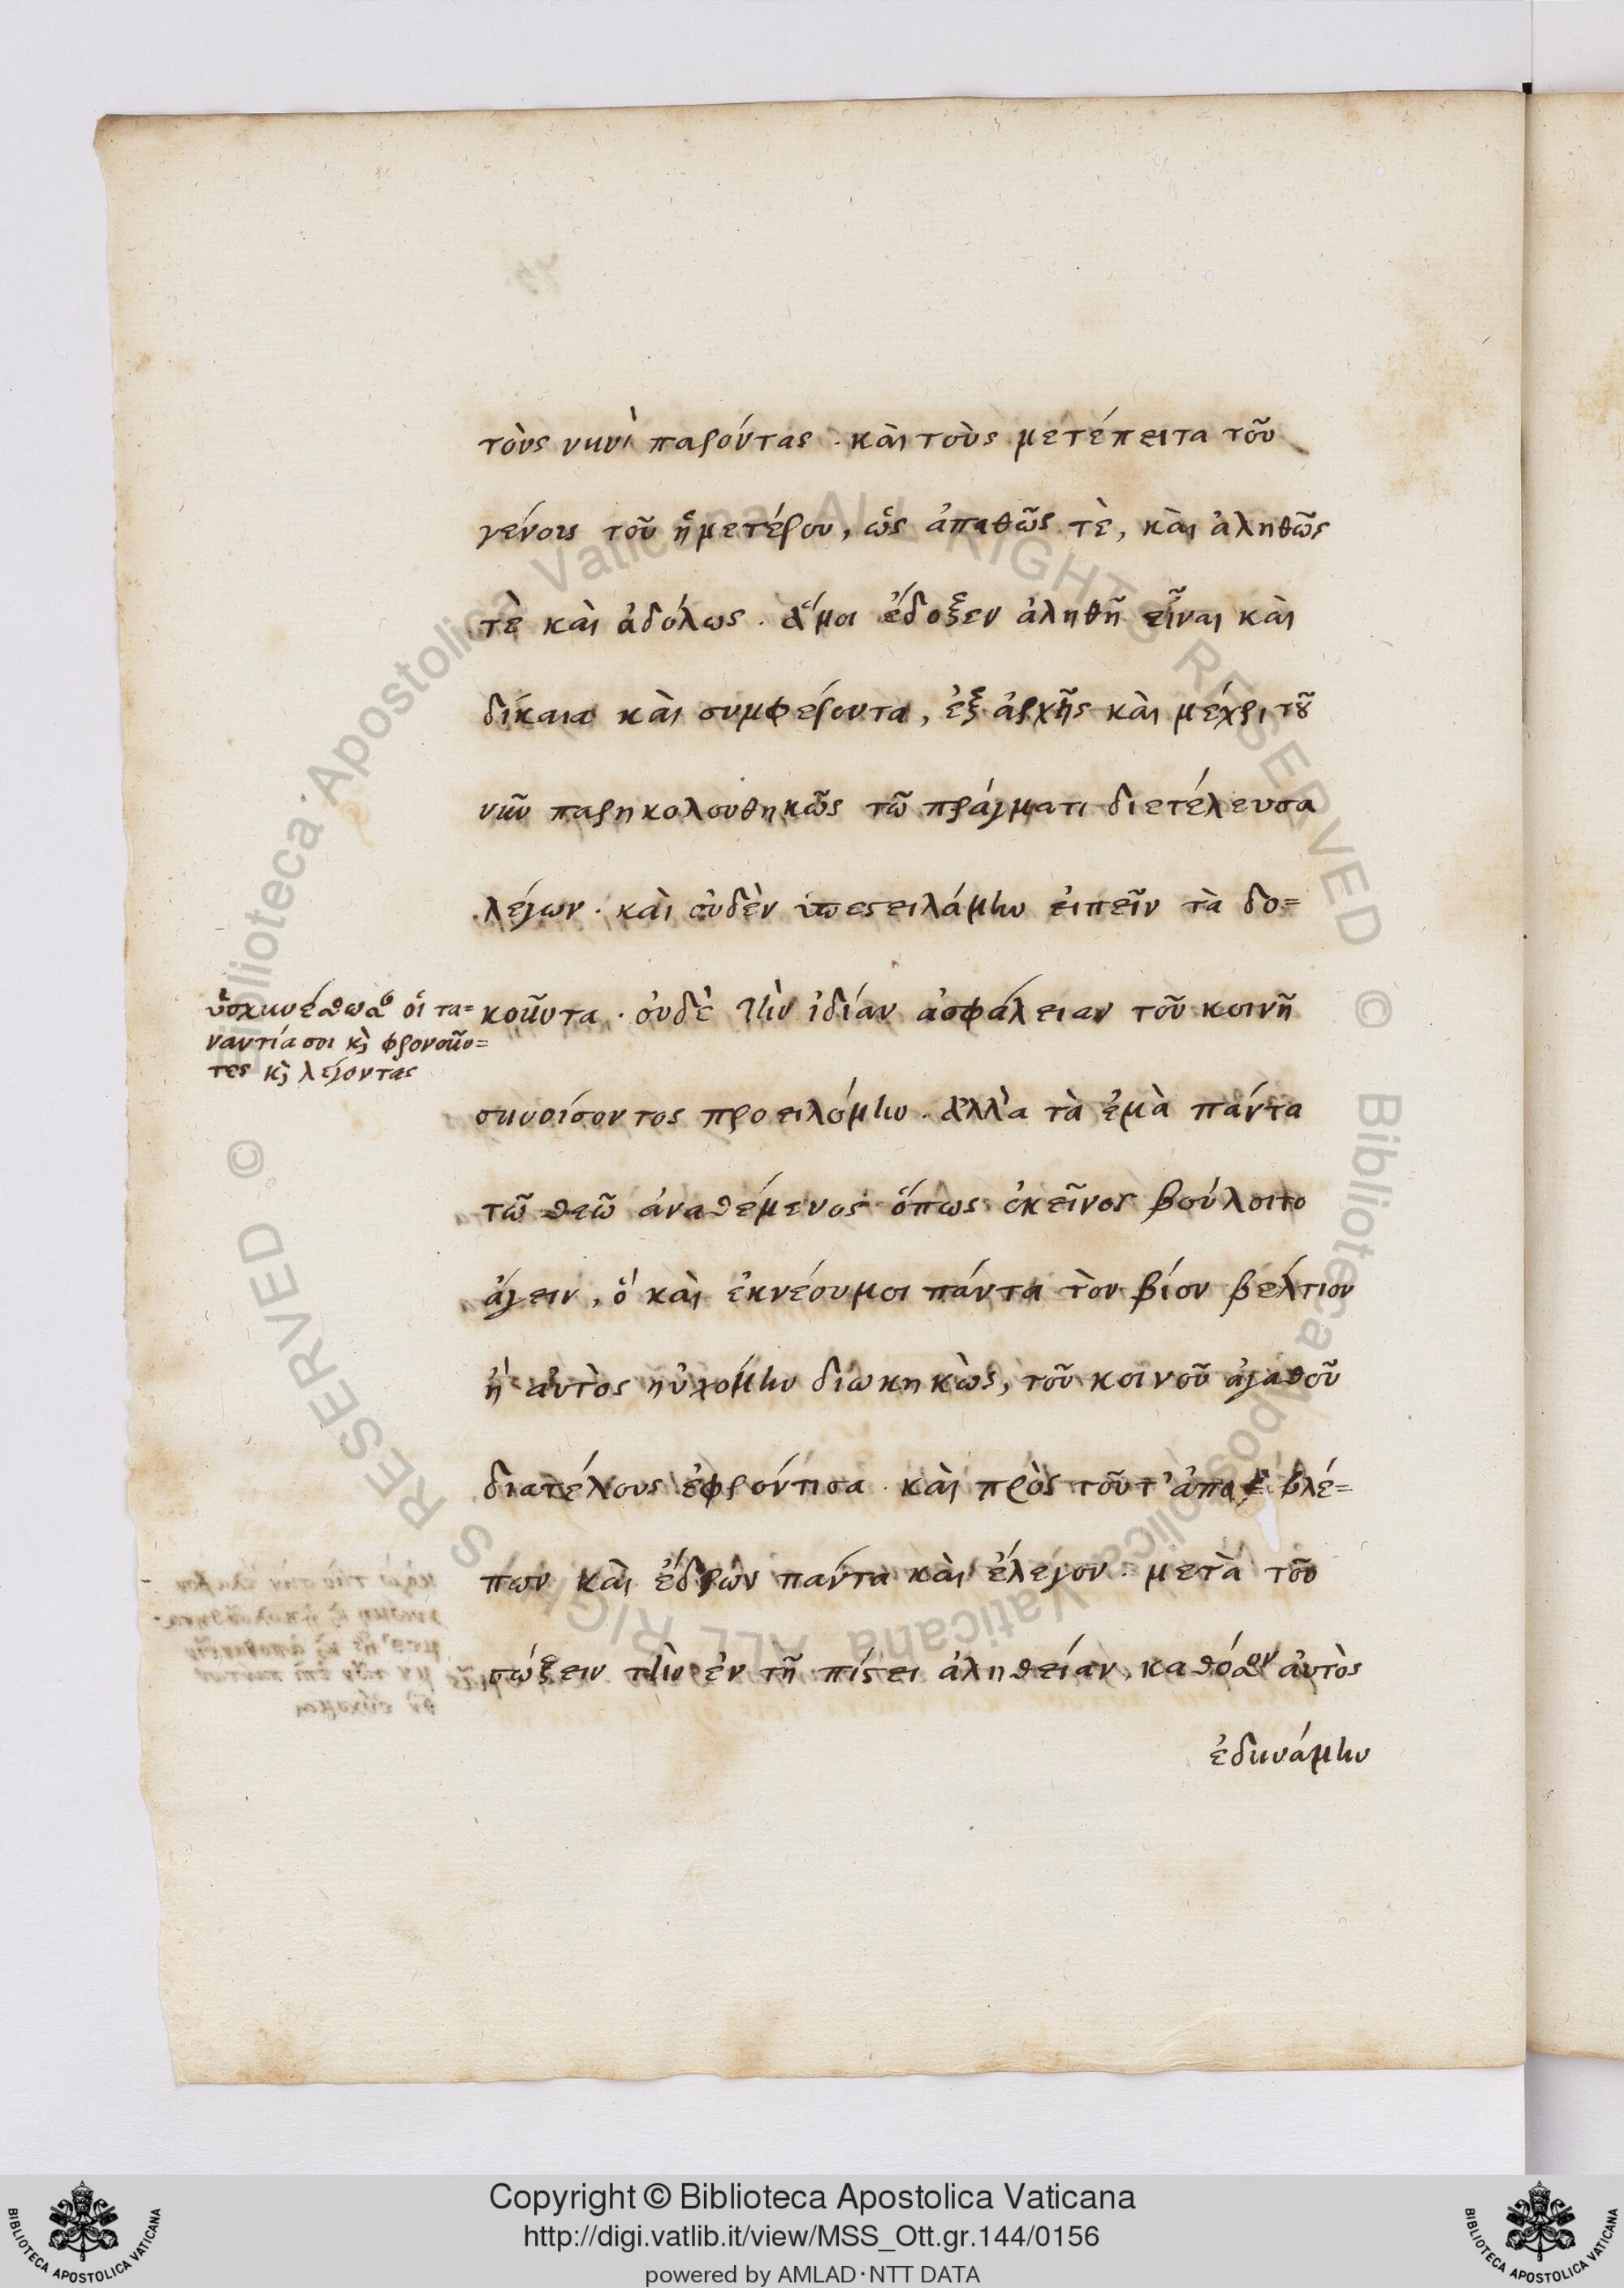 τοὺς νυνὶ παρόντας · καὶ τοὺς μετέπειτα τοῦ
γένους τοῦ ἡμετέρου, ὡς ἀπαθῶς τὲ, καὶ ἀληθῶς
τὲ καὶ ἀδόλως · ἅ μοι ἔδοξεν ἀληθῆ εἶναι καὶ
δίκαια καὶ συμφέροντα, ἐξ ἀρχῆς καὶ μέχρι τοῦ
νῦν παρηκολουθηκῶς τῶ πράγματι διετέλευσα
λέγων · καὶ οὐδὲν ὑπεστειλάμην εἰπεῖν τὰ δο=
κοῦντα · οὐδὲ τὴν ἰδίαν ἀσφάλειαν τοῦ κοινῆ
συνοίσοντος προειλόμην · ἀλλὰ τὰ ἐμὰ πάντα
τῶ θεῶ ἀναθέμενος ὅπως ἐκεῖνος βούλοιτο
ἄγειν, ὃ καὶ ἐκνέου μοι πάντα τὸν βίον βέλτιον
ἢ αὐτὸς ηὐχόμην διωκηκὼς, τοῦ κοινοῦ ἀγαθοῦ
διατέλους ἐφρόντισα · καὶ πρὸς τοῦτ' ἀπο βλέ=
πων καὶ ἔδρων πάντα καὶ ἔλεγον · μετὰ τοῦ
σώζειν τὴν ἐν τῆ πίστει ἀληθείαν, καθόσον αὐτὸς
ἐδυνάμην
οἱ τα=
ναντία σοι καὶ φρονοῦν=
τες καὶ λέγοντας
Copyright © Biblioteca Apostolica Vaticana
http://digi.vatlib.it/view/MSS_Ott.gr.144/0156
powered by AMLAD·NTT DATA
BIBLIOTECA APOSTOLICA VATICANA
BIBLIOTECA APOSTOLICA VATICANA
© Biblioteca Apostolica Vaticana ALL RIGHTS RESERVED © Biblioteca Apostolica Vaticana ALL RIGHTS RESERVED